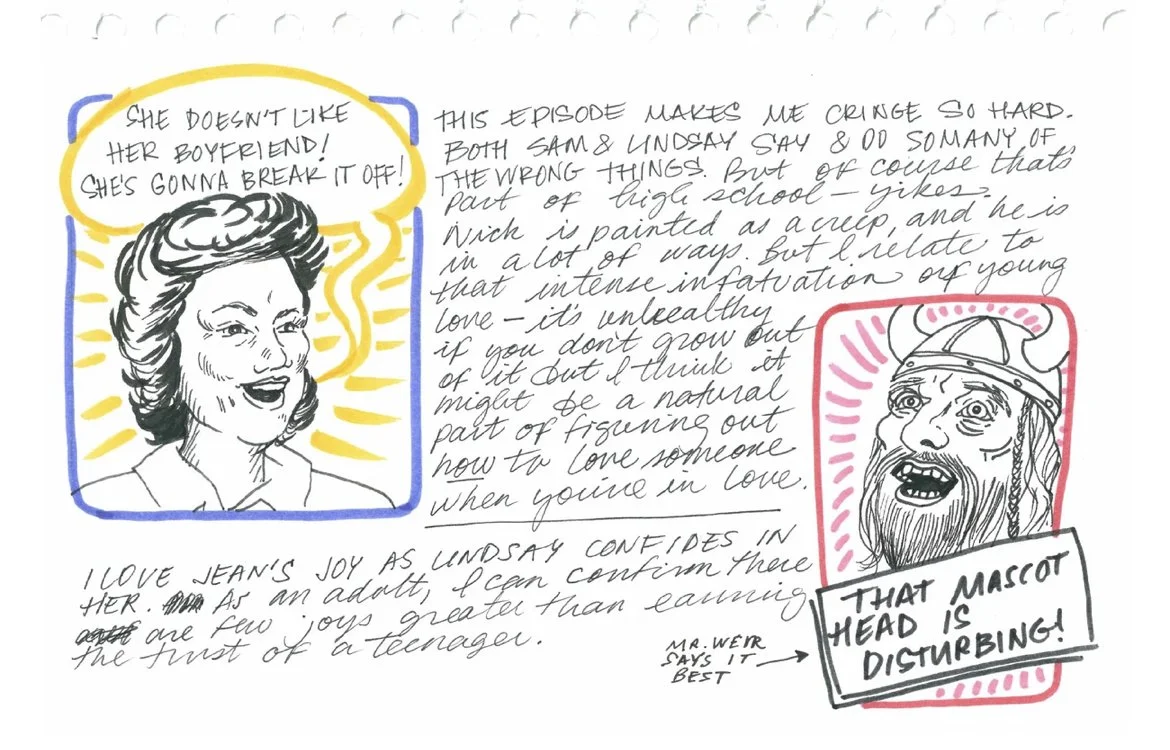 SHE DOESN'T LIKE
HER BOYFRIEND!
SHE'S GONNA BREAK IT OFF!
THIS EPISODE MAKES ME CRINGE SO HARD.
BOTH SAM & LINDSAY SAY & DO SO MANY OF
THE WRONG THINGS. But of course that's
part of high school – yikes.
Nick is painted as a creep, and he is
in a lot of ways. But I relate to
that intense infatuation of young
love – it's unhealthy
if you don't grow out
of it but I think it
might be a natural
part of figuring out
how to love someone
when you're in love.
I LOVE JEAN'S JOY AS LINDSAY CONFIDES IN
HER. As an adult, I can confirm there
are few joys greater than earning
the trust of a teenager.
MR. WEIR
SAYS IT
BEST
THAT MASCOT
HEAD IS
DISTURBING!